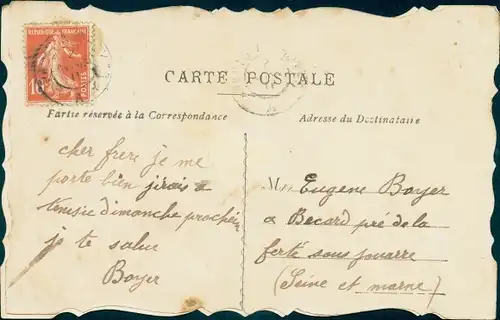 REPUBLIQUE FRANÇAISE
10
POSTES
CARTE POSTALE
Partie réservée à la Correspondance
Adresse du Destinataire
cher frere je me
porte bien jirais a
dimanche prochein
je te salue
Boyer
M. Eugene Boyer
a Becard pré de la
ferté sous jouarre
(Seine et marne)